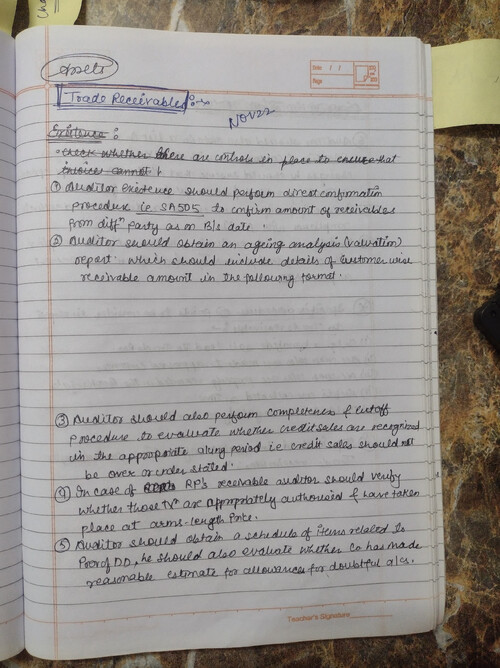 Assets
Date / /
Page
Trade Receivables :-
NOV 22
Existence :
check whether there are controls in place to ensure that
invoices cannot
① Auditor existence should perform direct confirmation
procedure i.e. SA 505 to confirm amount of receivables
from diffⁿ party as on B/s date.
② Auditor should obtain an ageing analysis (valuation)
report. which should include details of customer wise
receivable amount in the following format.
③ Auditor should also perform completeness & cutoff
procedure to evaluate whether credit sales are recognized
in the appropriate a/cing period i.e credit sales should not
be over or under stated.
④ In case of RP's receivable auditor should verify
whether those Tⁿ are appropriately authorised & have taken
place at arms-length Price.
⑤ Auditor should obtain a schedule of items related to
Prov of DD, he should also evaluate whether Co has made
reasonable estimate for allowances for doubtful a/cs.
Teacher's Signature